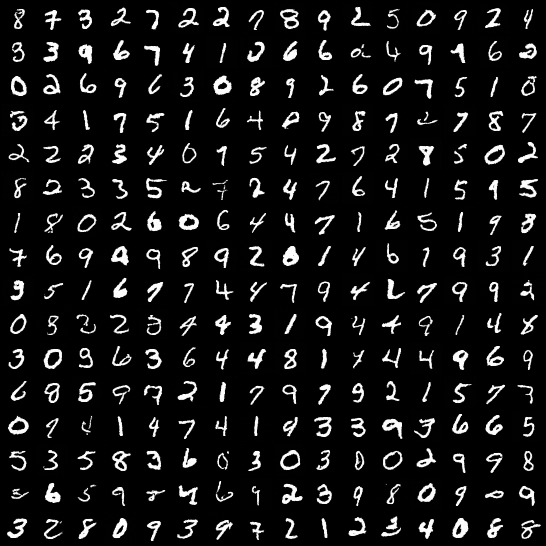 8 7 3 2 7 2 2 7 8 9 2 5 0 9 2 4
3 3 9 6 7 4 1 2 6 6 2 4 9 9 6 2
0 2 6 9 6 3 0 8 9 2 6 0 7 5 1 8
3 4 1 7 5 1 6 4 8 9 8 7 2 7 8 7
2 2 2 3 4 0 9 5 4 2 7 2 8 5 0 2
8 2 3 3 5 2 7 2 4 7 6 4 1 5 9 5
1 8 0 2 6 0 6 4 4 7 1 6 5 1 9 3
7 6 9 9 9 8 9 2 8 1 4 6 7 9 3 1
3 5 1 6 7 7 4 4 7 9 4 2 7 9 9 2
0 8 2 2 3 4 4 3 1 9 4 4 9 1 4 8
3 0 9 6 3 6 4 4 8 1 7 4 4 9 6 9
6 8 5 9 7 2 1 7 9 7 9 2 1 5 7 3
0 9 4 1 4 7 4 1 9 3 3 9 3 6 6 5
5 3 5 8 3 6 0 3 0 3 0 0 2 9 9 8
2 6 5 9 8 4 6 9 2 3 9 8 0 9 8 9
3 2 8 0 9 3 9 7 2 1 2 3 4 0 8 8